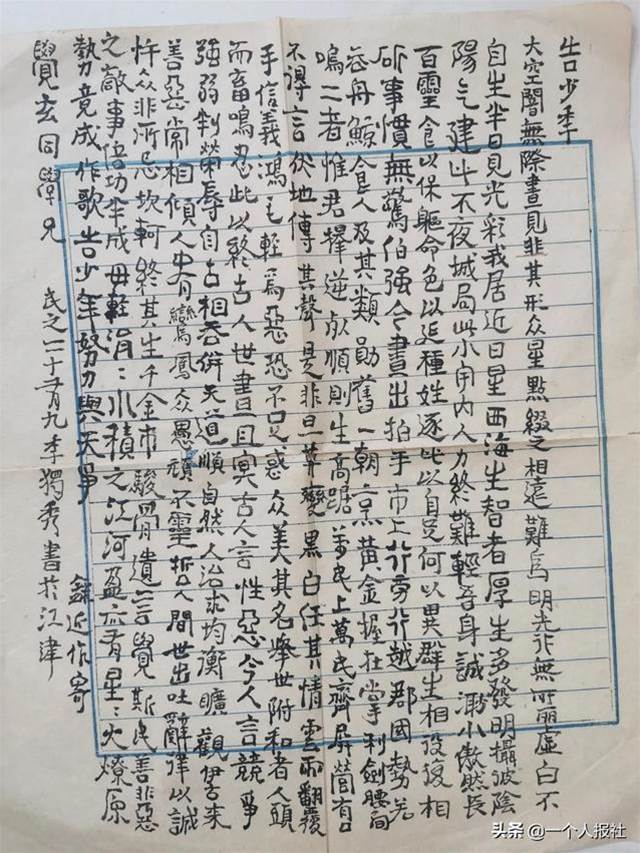 告少年
大空闇無際晝見非其形众星點綴之相遠難為明光行無所麗虛白不
自生半日見光彩我居近日星西海生智者厚生多發明攝彼陰
陽气建此不夜城局此小宇內人力終難輕吾身誠渺小傲然長
百靈食以保軀命色以延種姓逐此以自足何以異群生相役復相
斫事慣無驚伯强今晝出拍手市上行旁行越郡國勢若
吞舟鯨食人及其類勛舊一朝烹黃金握在掌利劍腰間
鳴二者惟君擇逆死順則生高踞萬民上萬民齊屏營有口
不得言伏地傳其聲是非旦暮變黑白任其情雲雨翻覆
手信義鴻毛輕為惡恐不足惑众美其名舉世附和者人頭
而畜鳴忍此以終古人世晝且冥古人言性惡今人言競爭
強弱判榮辱自古相吞併天道順自然人治求均衡曠觀伊古來
善惡常相傾人中有鸞鳳众愚頑不靈哲人間世出吐辭律以誠
忤众非所忌坎軻終其生千金市駿骨遺言覺斯民善非惡
之敵事倍功半成毋輕涓:水積之江河盈亦有星:火燎原
勢竟成作歌告少年努力與天爭 錄近作寄
覺玄同學兄 民之二十有九年獨秀書於江津
头条 @一个人报社